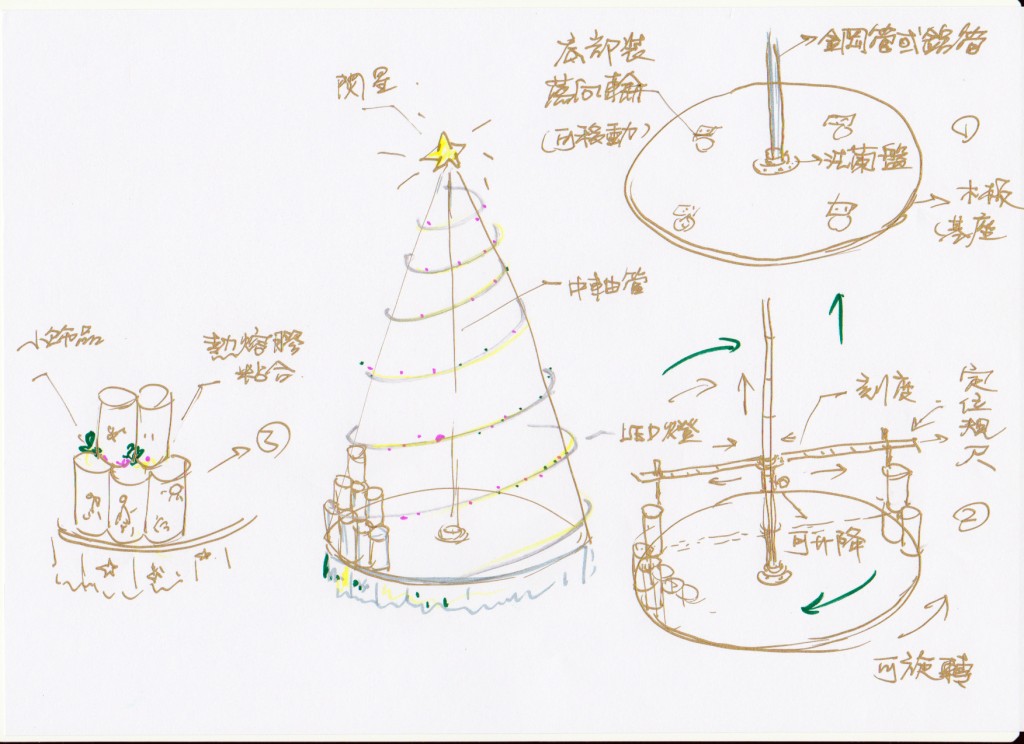 閃星
中軸管
LED燈
小飾品
熱熔膠
粘合
③
底部裝
萬向輪
(可移動)
金鋼管或鋁管
法蘭盤
木板
基座
①
刻度
定位規尺
可升降
②
可旋轉